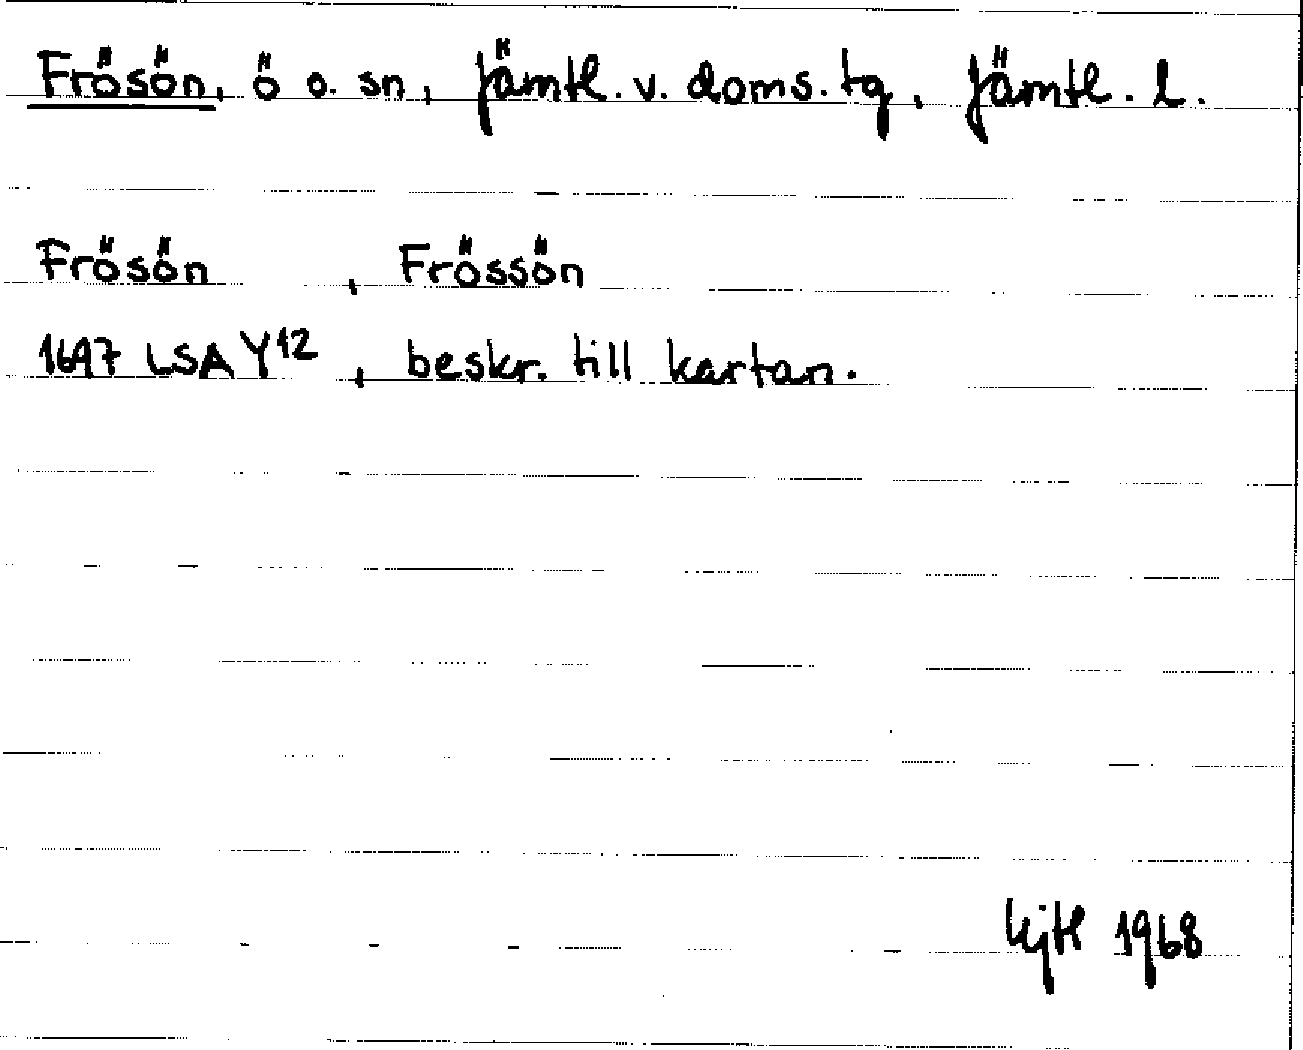 Frösön, ö o. sn, Jämtl. v. doms. tg, Jämtl. l.
Frösön , Frössön
1697 LSA Y12 , beskr. till kartan.
1968